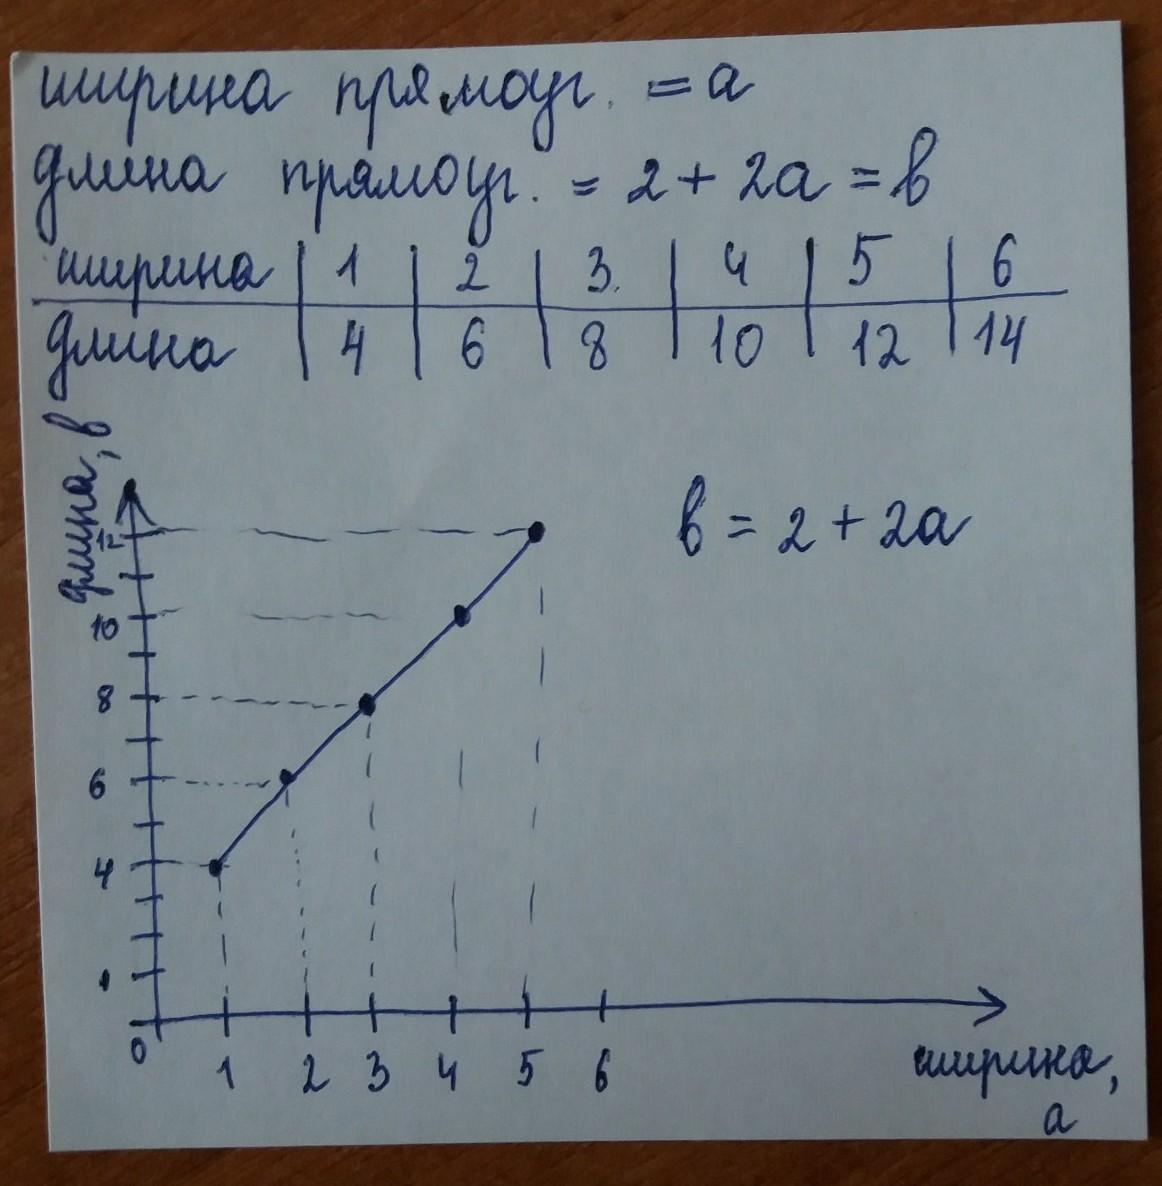 ширина прямоуг. = а
длина прямоуг. = 2 + 2а = в
ширина | 1 | 2 | 3. | 4 | 5 | 6
длина | 4 | 6 | 8 | 10 | 12 | 14
длина, в
в = 2 + 2а
12
10
8
6
4
1
0 1 2 3 4 5 6
ширина,
а